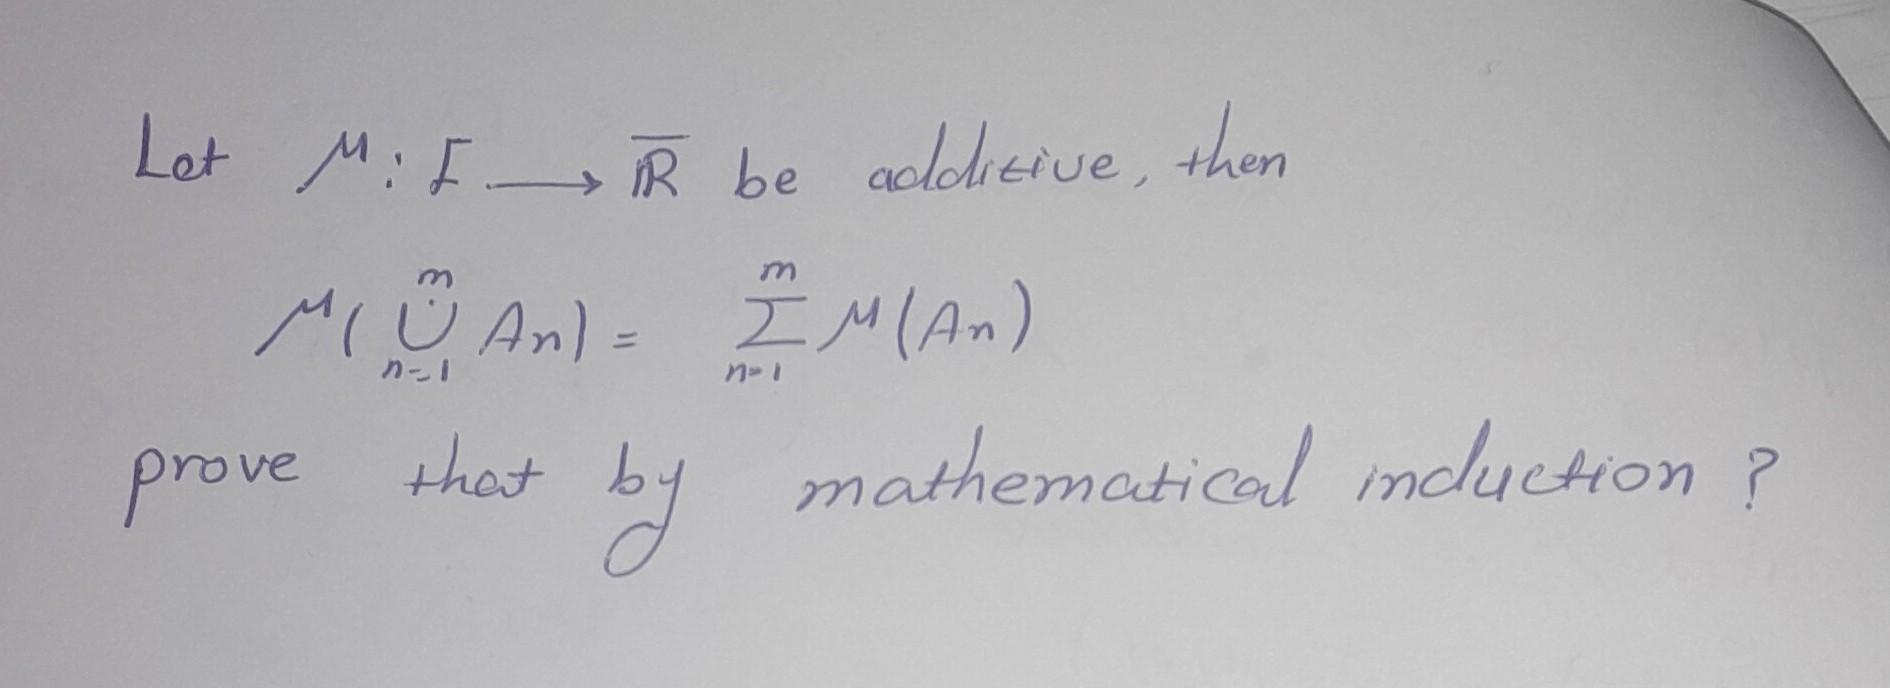 Let μ: Σ → R̅ be additive, then
μ(⨃ₙ₌₁ᵐ Aₙ) = Σₙ₌₁ᵐ μ(Aₙ)
prove that by mathematical induction ?